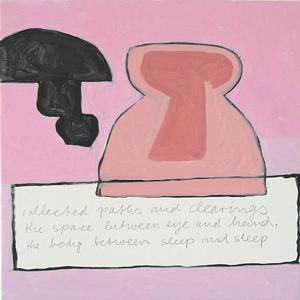 collected paths and clearings
the space between eye and hand,
the body between sleep and sleep